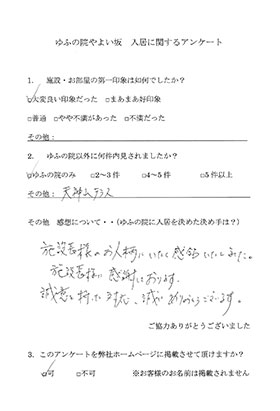 ゆふの院やよい坂 入居に関するアンケート
1. 施設・お部屋の第一印象は如何でしたか?
☑大変良い印象だった □まあまあ好印象
□普通 □やや不満があった □不満だった
その他:
2. ゆふの院以外に何件内見されましたか?
☑ゆふの院のみ □2~3件 □4~5件 □5件以上
その他: 天神ムテラス
その他 感想について・・(ゆふの院に入居を決めた決め手は?)
施設長様のお人柄にいたく感銘いたしました。
施設長様に感謝しております。
誠意に持った対応、誠にありがとうございます。
ご協力ありがとうございました
3. このアンケートを弊社ホームページに掲載させて頂けますか?
☑可 □不可 ※お客様のお名前は掲載されません